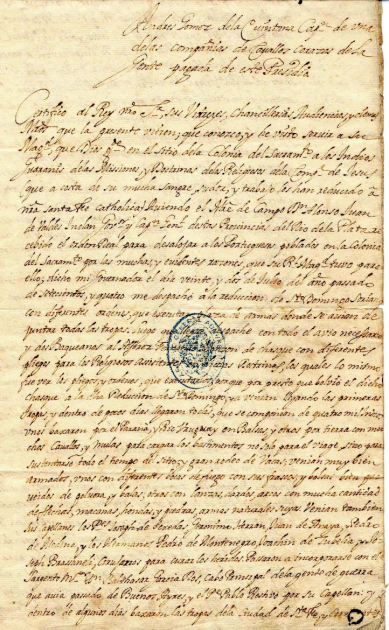 Andres Gomez de la Quintana Cap.n de una
de las compañias de Cavallos Corazas de la
Gente pagada de este Presidio
Certifico al Rey nro S.r, sus Virreyes, Chancillerias, Audiencias, y demas
que la presente vieren, que conozco, y he visto servir a su
Mag.d, que Dios g.e en el sitio de la Colonia del Sacram.to a los Indios
Guaranis de las Misiones, y Doctrinas de los Religiosos de la Comp.a de Jesus
que a costa de su mucha Sangre, sudor, y trabajo los han reducido a
nra santa fee catholica; Aviendo el Mre de Campo Dn Alonso Juan
de Valdes Inclan Gov.or y Cap.n Gen.l destas Provincias del Rio de la Plata, re
cebido el orden Real para desalojar a los Portugueses poblados en la Colonia
del Sacram.to por las muchas, y evidentes razones, que su R.l Mag.d tuvo para
ello; dicho mi Governador el dia veinte, y dos de Julio del año passado
de setecientos, y quatro me despachó a la reduccion de S.to Domingo Soriano
con diferentes ordenes, que de armas donde se avian de
juntar todas las tropas. Luego que despaché con todo el avio necess.o
y dos Baqueanos al de chasque con diferentes
pliegos para los Religiosos Doctrinas, los quales lo mismo
fue ver los pliegos, y que por presto que bolvió el dicho
chasque a la dha Reduccion de S.to Domingo, ya venian llegando las primeras
tropas, y dentro de pocos dias llegaron todas, que se componian de quatro mil Indios
unos baxaron por el Paraná, y Rio Uruguay en Balsas, y otros por tierra con mu
chos Cavallos, y Mulas para cargar los bastimentos no solo para el viage, sino para
sustentarse todo el tiempo del sitio, y gran de Vacas, venian muy bien
armados, unos con diferentes bocas de fuego con sus frascos, y bolsas bien
de polvora, y balas, otros con lanzas, dardos, arcos con mucha cantidad
de flechas, macanas, hondas, y piedras, armas naturales suyas. Venian tambien
sus Capellanes los P.es Joseph de Juan de Anaya, y Pedro
de Medina, y los Hermanos Pedro de Montenegro, Joachin de Zubeldia, y Jo
seph Brasaneli, Cirujanos para curar los heridos. Passaron a incorporarse con el
Sargento M.r Dn Balthasar Garcia Ros, Cabo Principal de la gente de guerra
que avia passado de Buenos Ayres, y el P.e Pablo Restivo por su Capellan; y
dentro de algunos dias baxaron las tropas de la Ciudad de S.ta Fe,